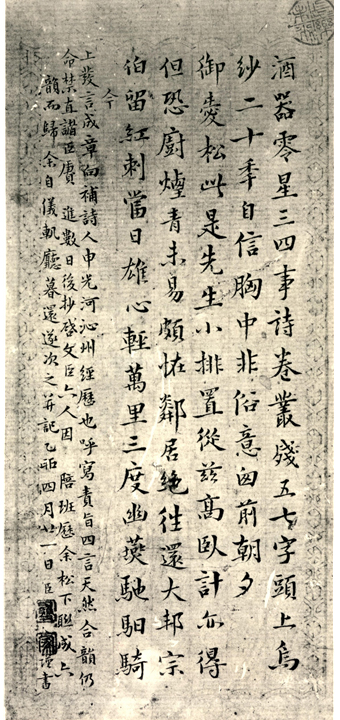 酒器零星三四事詩卷叢殘五七字頭上烏
紗二十年自信胸中非俗意囱前朝夕
御愛松此是先生小排置從玆高臥計亦得
但恐廚煙青未易頗恠鄰居絶徃還大邦宗
伯留紅刺當日雄心輕萬里三度幽薊馳馹騎
今
上發言成章向補詩人申光河沁州經歷也呼寫責旨四言天然合韻仍
命禁直諸臣賡進數日後抄啓文臣六人因陪班歷余松下聯成六
韻而歸余自儀軌廳暮還遂次之幷記乙卯四月廿一日臣 書